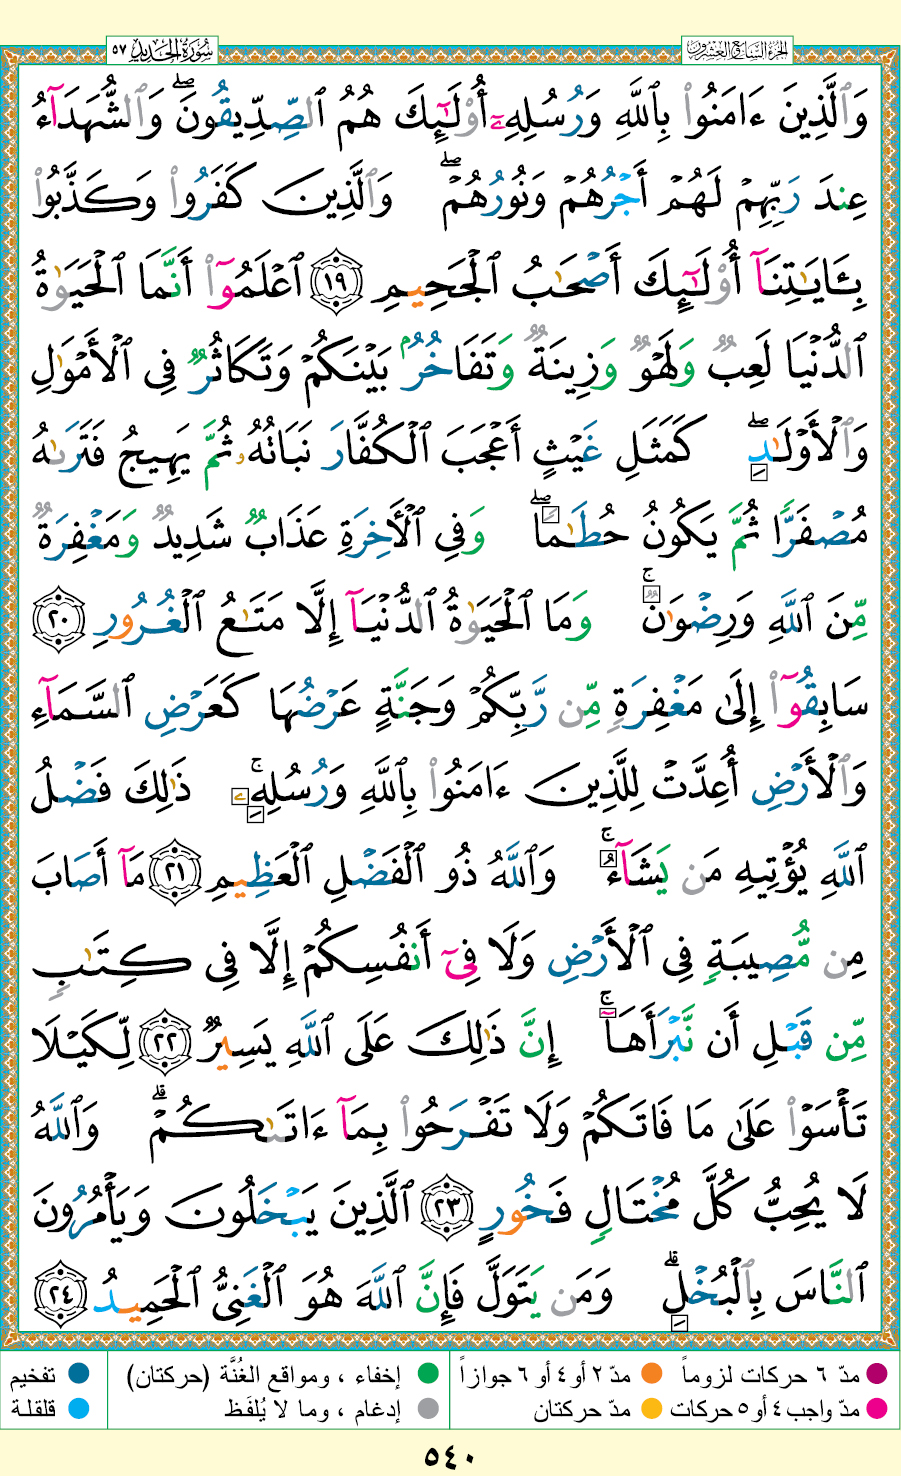 الجزء السابع والعشرون
سورة الحديد ٥٧
وَٱلَّذِينَ ءَامَنُوا۟ بِٱللَّهِ وَرُسُلِهِۦٓ أُو۟لَـٰٓئِكَ هُمُ ٱلصِّدِّيقُونَ ۖ وَٱلشُّهَدَآءُ
عِندَ رَبِّهِمْ لَهُمْ أَجْرُهُمْ وَنُورُهُمْ ۖ وَٱلَّذِينَ كَفَرُوا۟ وَكَذَّبُوا۟
بِـَٔايَـٰتِنَآ أُو۟لَـٰٓئِكَ أَصْحَـٰبُ ٱلْجَحِيمِ ١٩ ٱعْلَمُوٓا۟ أَنَّمَا ٱلْحَيَوٰةُ
ٱلدُّنْيَا لَعِبٌ وَلَهْوٌ وَزِينَةٌ وَتَفَاخُرٌۢ بَيْنَكُمْ وَتَكَاثُرٌ فِى ٱلْأَمْوَٰلِ
وَٱلْأَوْلَـٰدِ ۖ كَمَثَلِ غَيْثٍ أَعْجَبَ ٱلْكُفَّارَ نَبَاتُهُۥ ثُمَّ يَهِيجُ فَتَرَىٰهُ
مُصْفَرًّا ثُمَّ يَكُونُ حُطَـٰمًا ۖ وَفِى ٱلْـَٔاخِرَةِ عَذَابٌ شَدِيدٌ وَمَغْفِرَةٌ
مِّنَ ٱللَّهِ وَرِضْوَٰنٌ ۚ وَمَا ٱلْحَيَوٰةُ ٱلدُّنْيَآ إِلَّا مَتَـٰعُ ٱلْغُرُورِ ٢٠
سَابِقُوٓا۟ إِلَىٰ مَغْفِرَةٍ مِّن رَّبِّكُمْ وَجَنَّةٍ عَرْضُهَا كَعَرْضِ ٱلسَّمَآءِ
وَٱلْأَرْضِ أُعِدَّتْ لِلَّذِينَ ءَامَنُوا۟ بِٱللَّهِ وَرُسُلِهِۦ ۚ ذَٰلِكَ فَضْلُ
ٱللَّهِ يُؤْتِيهِ مَن يَشَآءُ ۚ وَٱللَّهُ ذُو ٱلْفَضْلِ ٱلْعَظِيمِ ٢١ مَآ أَصَابَ
مِن مُّصِيبَةٍ فِى ٱلْأَرْضِ وَلَا فِىٓ أَنفُسِكُمْ إِلَّا فِى كِتَـٰبٍ
مِّن قَبْلِ أَن نَّبْرَأَهَآ ۚ إِنَّ ذَٰلِكَ عَلَى ٱللَّهِ يَسِيرٌ ٢٢ لِّكَيْلَا
تَأْسَوْا۟ عَلَىٰ مَا فَاتَكُمْ وَلَا تَفْرَحُوا۟ بِمَآ ءَاتَىٰكُمْ ۗ وَٱللَّهُ
لَا يُحِبُّ كُلَّ مُخْتَالٍ فَخُورٍ ٢٣ ٱلَّذِينَ يَبْخَلُونَ وَيَأْمُرُونَ
ٱلنَّاسَ بِٱلْبُخْلِ ۗ وَمَن يَتَوَلَّ فَإِنَّ ٱللَّهَ هُوَ ٱلْغَنِىُّ ٱلْحَمِيدُ ٢٤
مدّ ٦ حركات لزوماً مدّ ٢ أو ٤ أو ٦ جوازاً إخفاء ، ومواقع الغُنَّة (حركتان) تفخيم
مدّ واجب ٤ أو ٥ حركات مدّ حركتان إدغام ، وما لا يُلفَظ قلقلة
٥٤٠